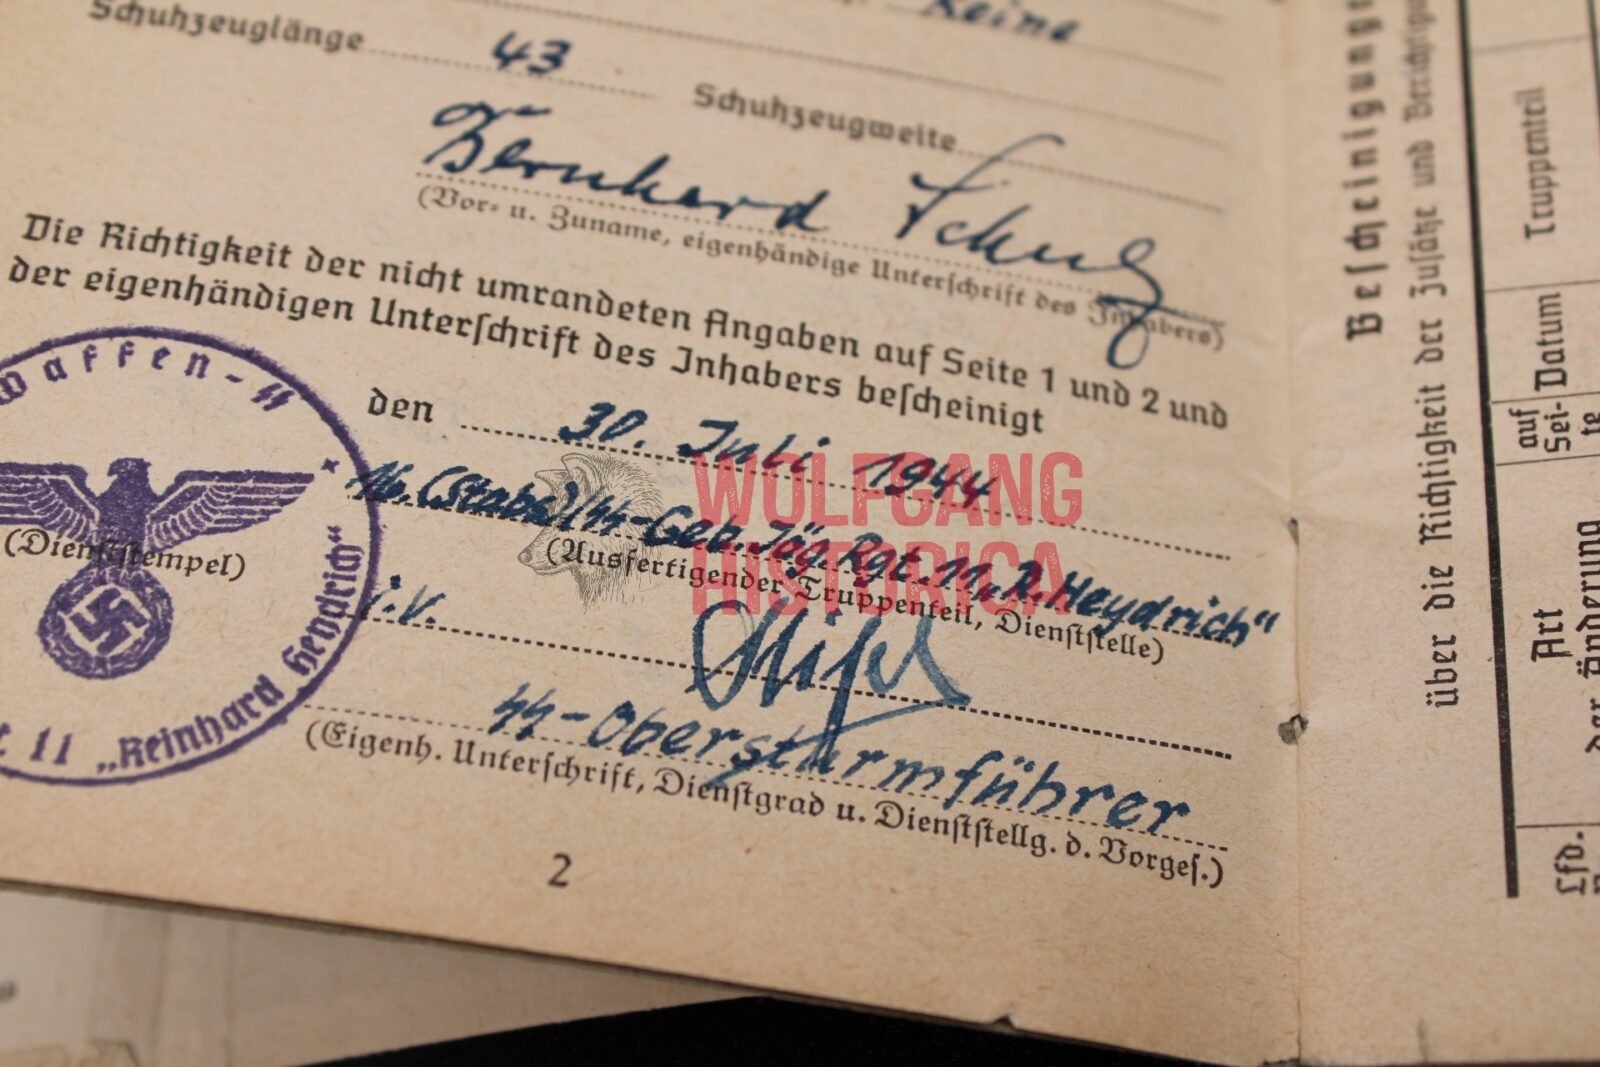 Keine
Schuhzeuglänge 43
Schuhzeugweite
Bernhard Schulz
(Vor- u. Zuname, eigenhändige Unterschrift des Inhabers)
Die Richtigkeit der nicht umrandeten Angaben auf Seite 1 und 2 und
der eigenhändigen Unterschrift des Inhabers bescheinigt
den 30. Juli 1944
16.(Stabs)/SS-Geb.Jäg.Rgt.11„R.Heydrich“
(Ausfertigender Truppenteil, Dienststelle)
i.V.
SS-Obersturmführer
(Eigenh. Unterschrift, Dienstgrad u. Dienststellg. d. Vorges.)
2
Waffen-SS
(Dienststempel)
11 „Reinhard Heydrich“
WOLFGANG
HISTORICA
Bescheinigung
über die Richtigkeit der Zusätze und
Truppenteil
Datum
auf
Sei-
te
Art
der Änderung
Lfd.